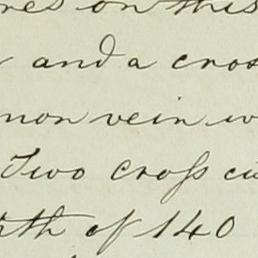 res on this
and a cros
mon vein w
Two cross cu
pth of 140